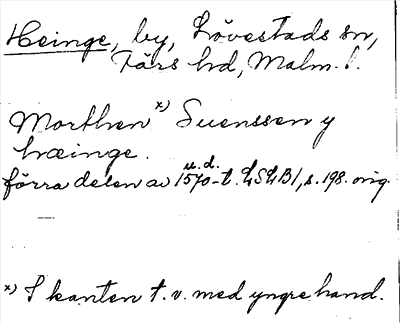 Heinge, by, Lövestads sn,
Färs hd, Malm. l.
Morthen x) Suenssen y
hæinge.
förra delen av u.d. 1570-t. LSLB1, s. 198. orig.
x) I kanten t.v. med yngre hand.